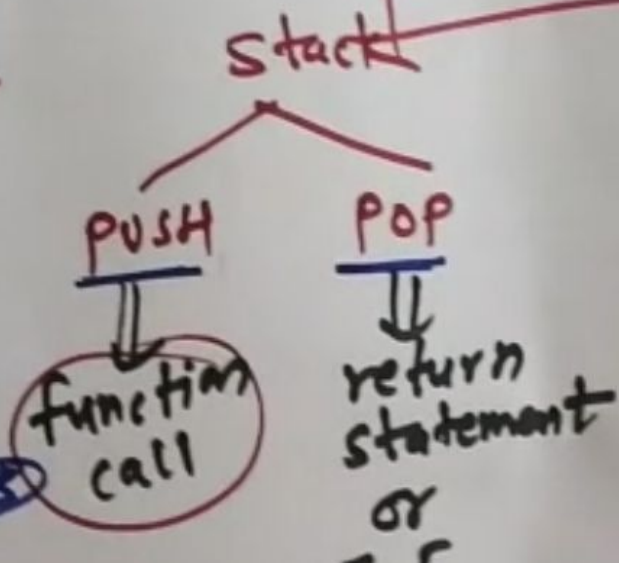 stack
PUSH
POP
function
call
return
statement
or